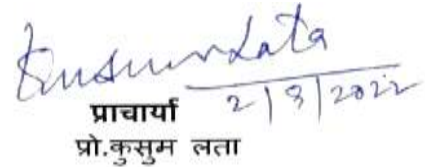 Kusum Lata
2/9/2022
प्राचार्या
प्रो.कुसुम लता